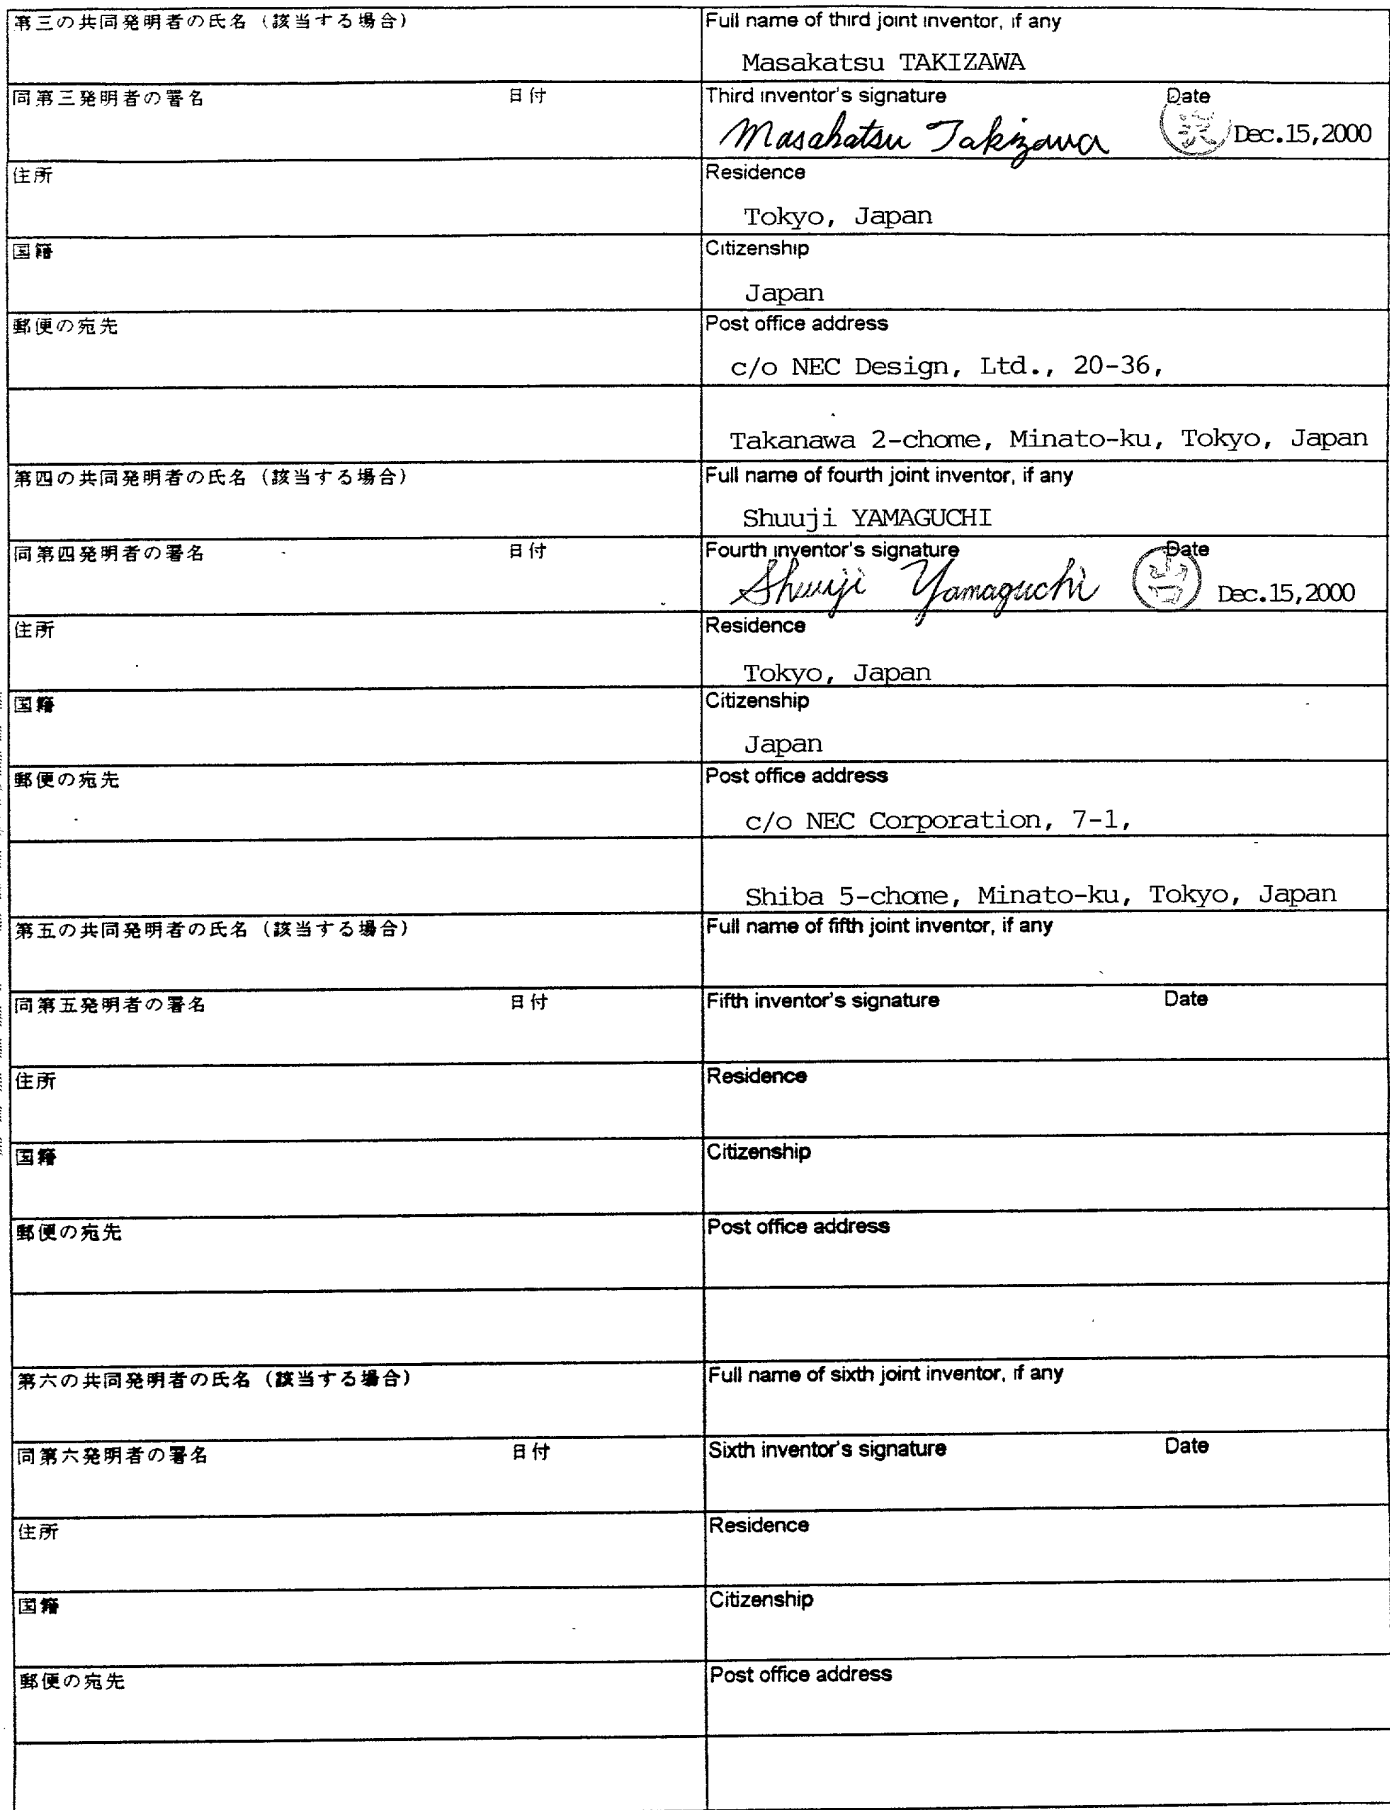 第三の共同発明者の氏名（該当する場合）
Full name of third joint inventor, if any
Masakatsu TAKIZAWA
同第三発明者の署名 日付
Third inventor's signature Date
Masakatsu Takizawa Dec.15,2000
住所
Residence
Tokyo, Japan
国籍
Citizenship
Japan
郵便の宛先
Post office address
c/o NEC Design, Ltd., 20-36,
Takanawa 2-chome, Minato-ku, Tokyo, Japan
第四の共同発明者の氏名（該当する場合）
Full name of fourth joint inventor, if any
Shuuji YAMAGUCHI
同第四発明者の署名 日付
Fourth inventor's signature Date
Shuuji Yamaguchi Dec.15,2000
住所
Residence
Tokyo, Japan
国籍
Citizenship
Japan
郵便の宛先
Post office address
c/o NEC Corporation, 7-1,
Shiba 5-chome, Minato-ku, Tokyo, Japan
第五の共同発明者の氏名（該当する場合）
Full name of fifth joint inventor, if any
同第五発明者の署名 日付
Fifth inventor's signature Date
住所
Residence
国籍
Citizenship
郵便の宛先
Post office address
第六の共同発明者の氏名（該当する場合）
Full name of sixth joint inventor, if any
同第六発明者の署名 日付
Sixth inventor's signature Date
住所
Residence
国籍
Citizenship
郵便の宛先
Post office address